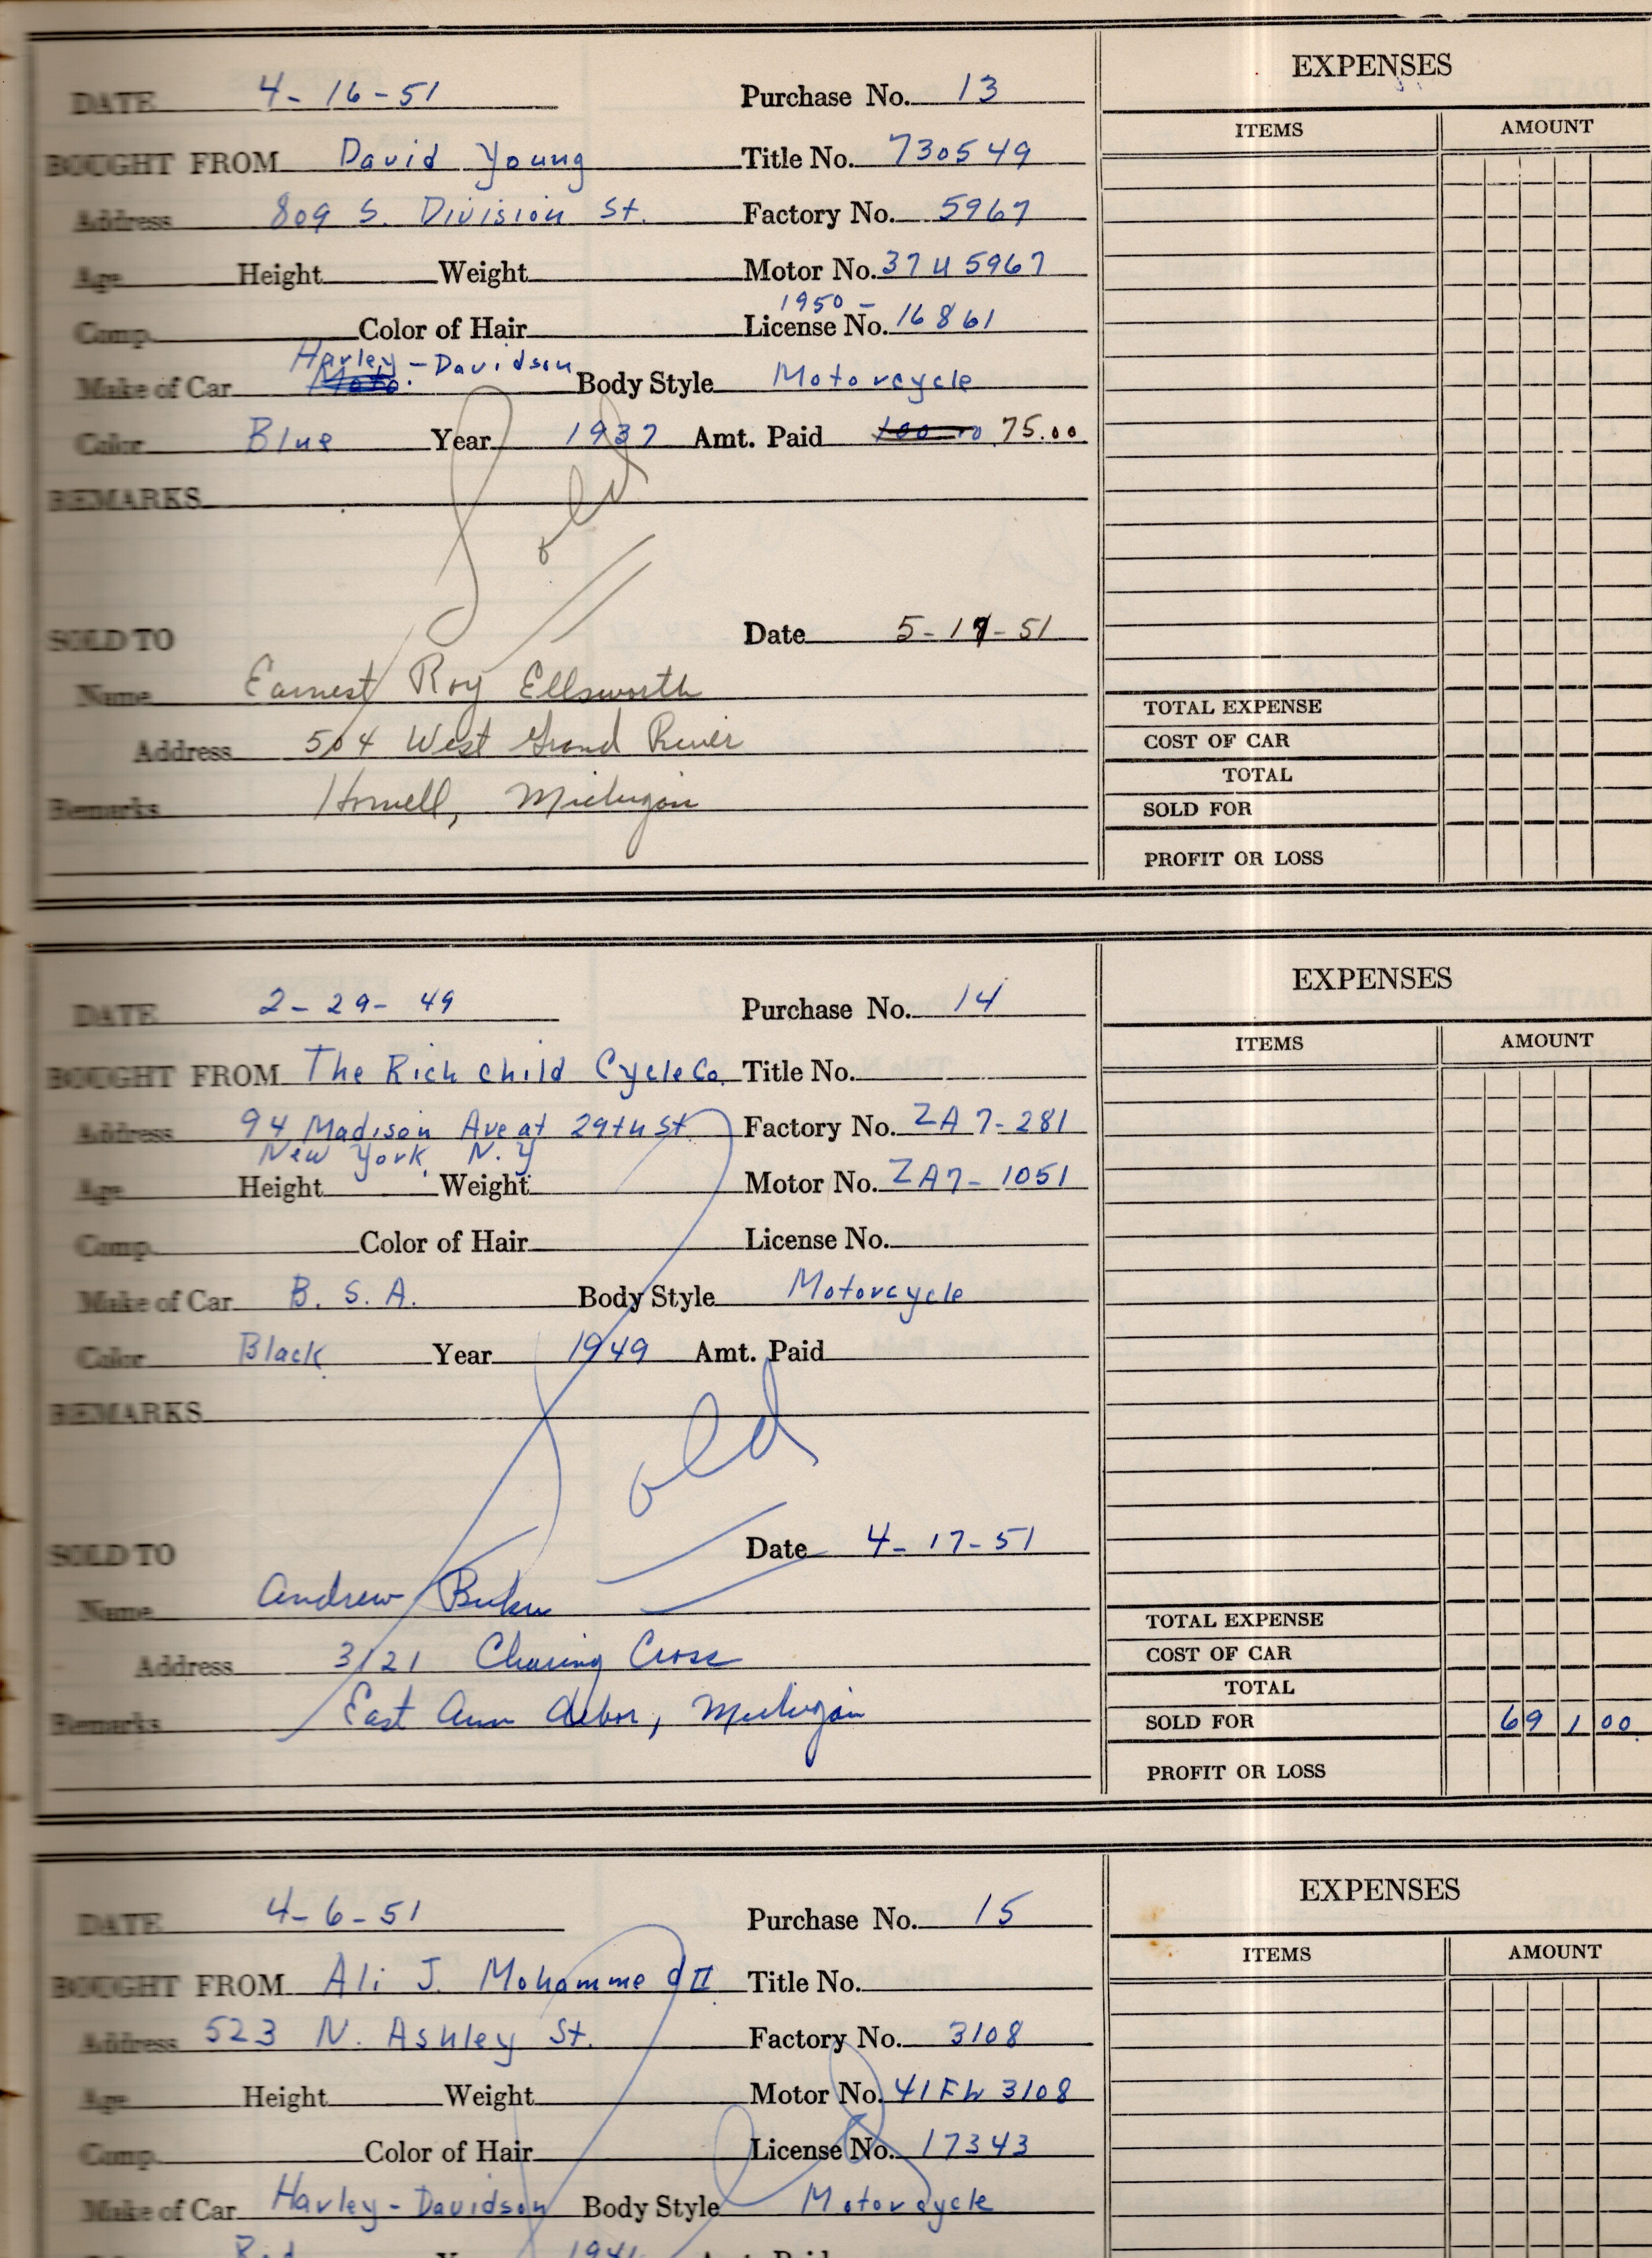 EXPENSES
DATE 4-16-51 Purchase No. 13
ITEMS AMOUNT
BOUGHT FROM David Young Title No. 730549
Address 809 S. Division St. Factory No. 5967
Age Height Weight Motor No. 37U5967
1950 -
Comp. Color of Hair License No. 16861
Harley-Davidson
Make of Car Moto. Body Style Motorcycle
Color Blue Year 1937 Amt. Paid 75.00
REMARKS
Sold
SOLD TO Date 5-17-51
Name Earnest Roy Ellsworth
TOTAL EXPENSE
Address 504 West Grand River
COST OF CAR
TOTAL
Remarks Howell, Michigan
SOLD FOR
PROFIT OR LOSS
EXPENSES
DATE 2-29-49 Purchase No. 14
ITEMS AMOUNT
BOUGHT FROM The Rich child Cycle Co. Title No.
Address 94 Madison Ave at 29th St. Factory No. ZA7-281
New York, N.Y
Age Height Weight Motor No. ZA7-1051
Comp. Color of Hair License No.
Make of Car B.S.A. Body Style Motorcycle
Color Black Year 1949 Amt. Paid
REMARKS
Sold
SOLD TO Date 4-17-51
Name Andrew
TOTAL EXPENSE
Address 3121 Charing Cross
COST OF CAR
TOTAL
Remarks East Ann Arbor, Michigan
SOLD FOR 691 00
PROFIT OR LOSS
EXPENSES
DATE 4-6-51 Purchase No. 15
ITEMS AMOUNT
BOUGHT FROM Ali J. Mohammed II Title No.
Address 523 N. Ashley St. Factory No. 3108
Age Height Weight Motor No. 41FL 3108
Comp. Color of Hair License No. 17343
Make of Car Harley-Davidson Body Style Motorcycle
Color Red Year 1941 Amt. Paid